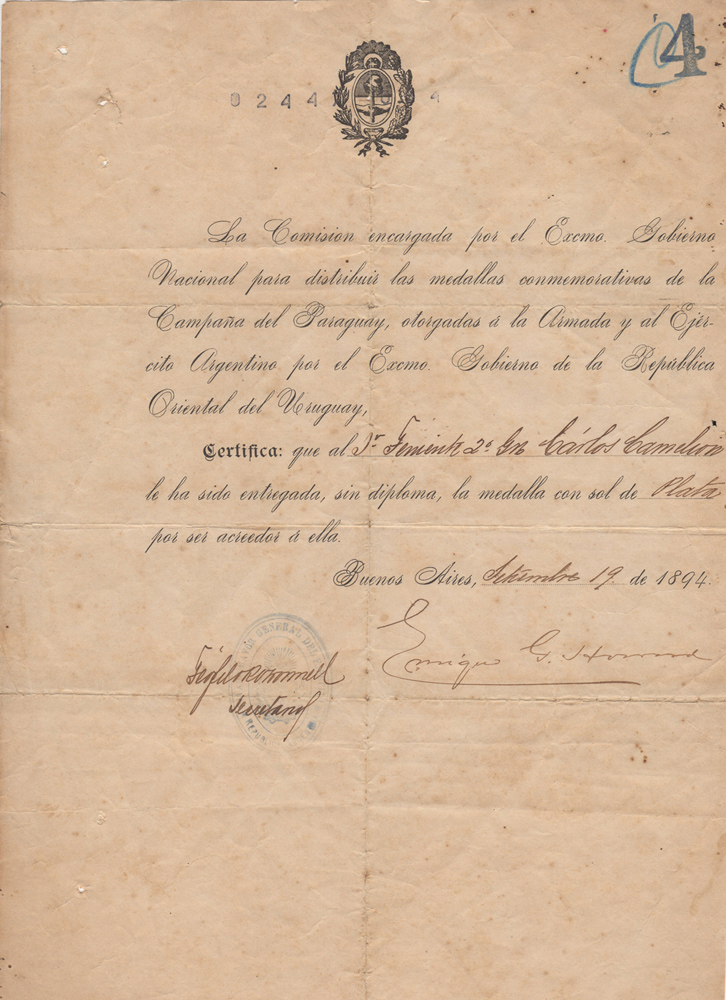 4
0244 4
La Comision encargada por el Excmo. Gobierno
Nacional para distribuir las medallas conmemorativas de la
Campaña del Paraguay, otorgadas á la Armada y al Ejér-
cito Argentino por el Excmo. Gobierno de la República
Oriental del Uruguay,
Certifica: que al Sr. 2º Cárlos Camelino
le ha sido entregada, sin diploma, la medalla con sol de Plata
por ser acreedor á ella.
Buenos Aires, Setiembre 19 de 1894.
Enrique G. Howard
GENERAL DE
Secretario